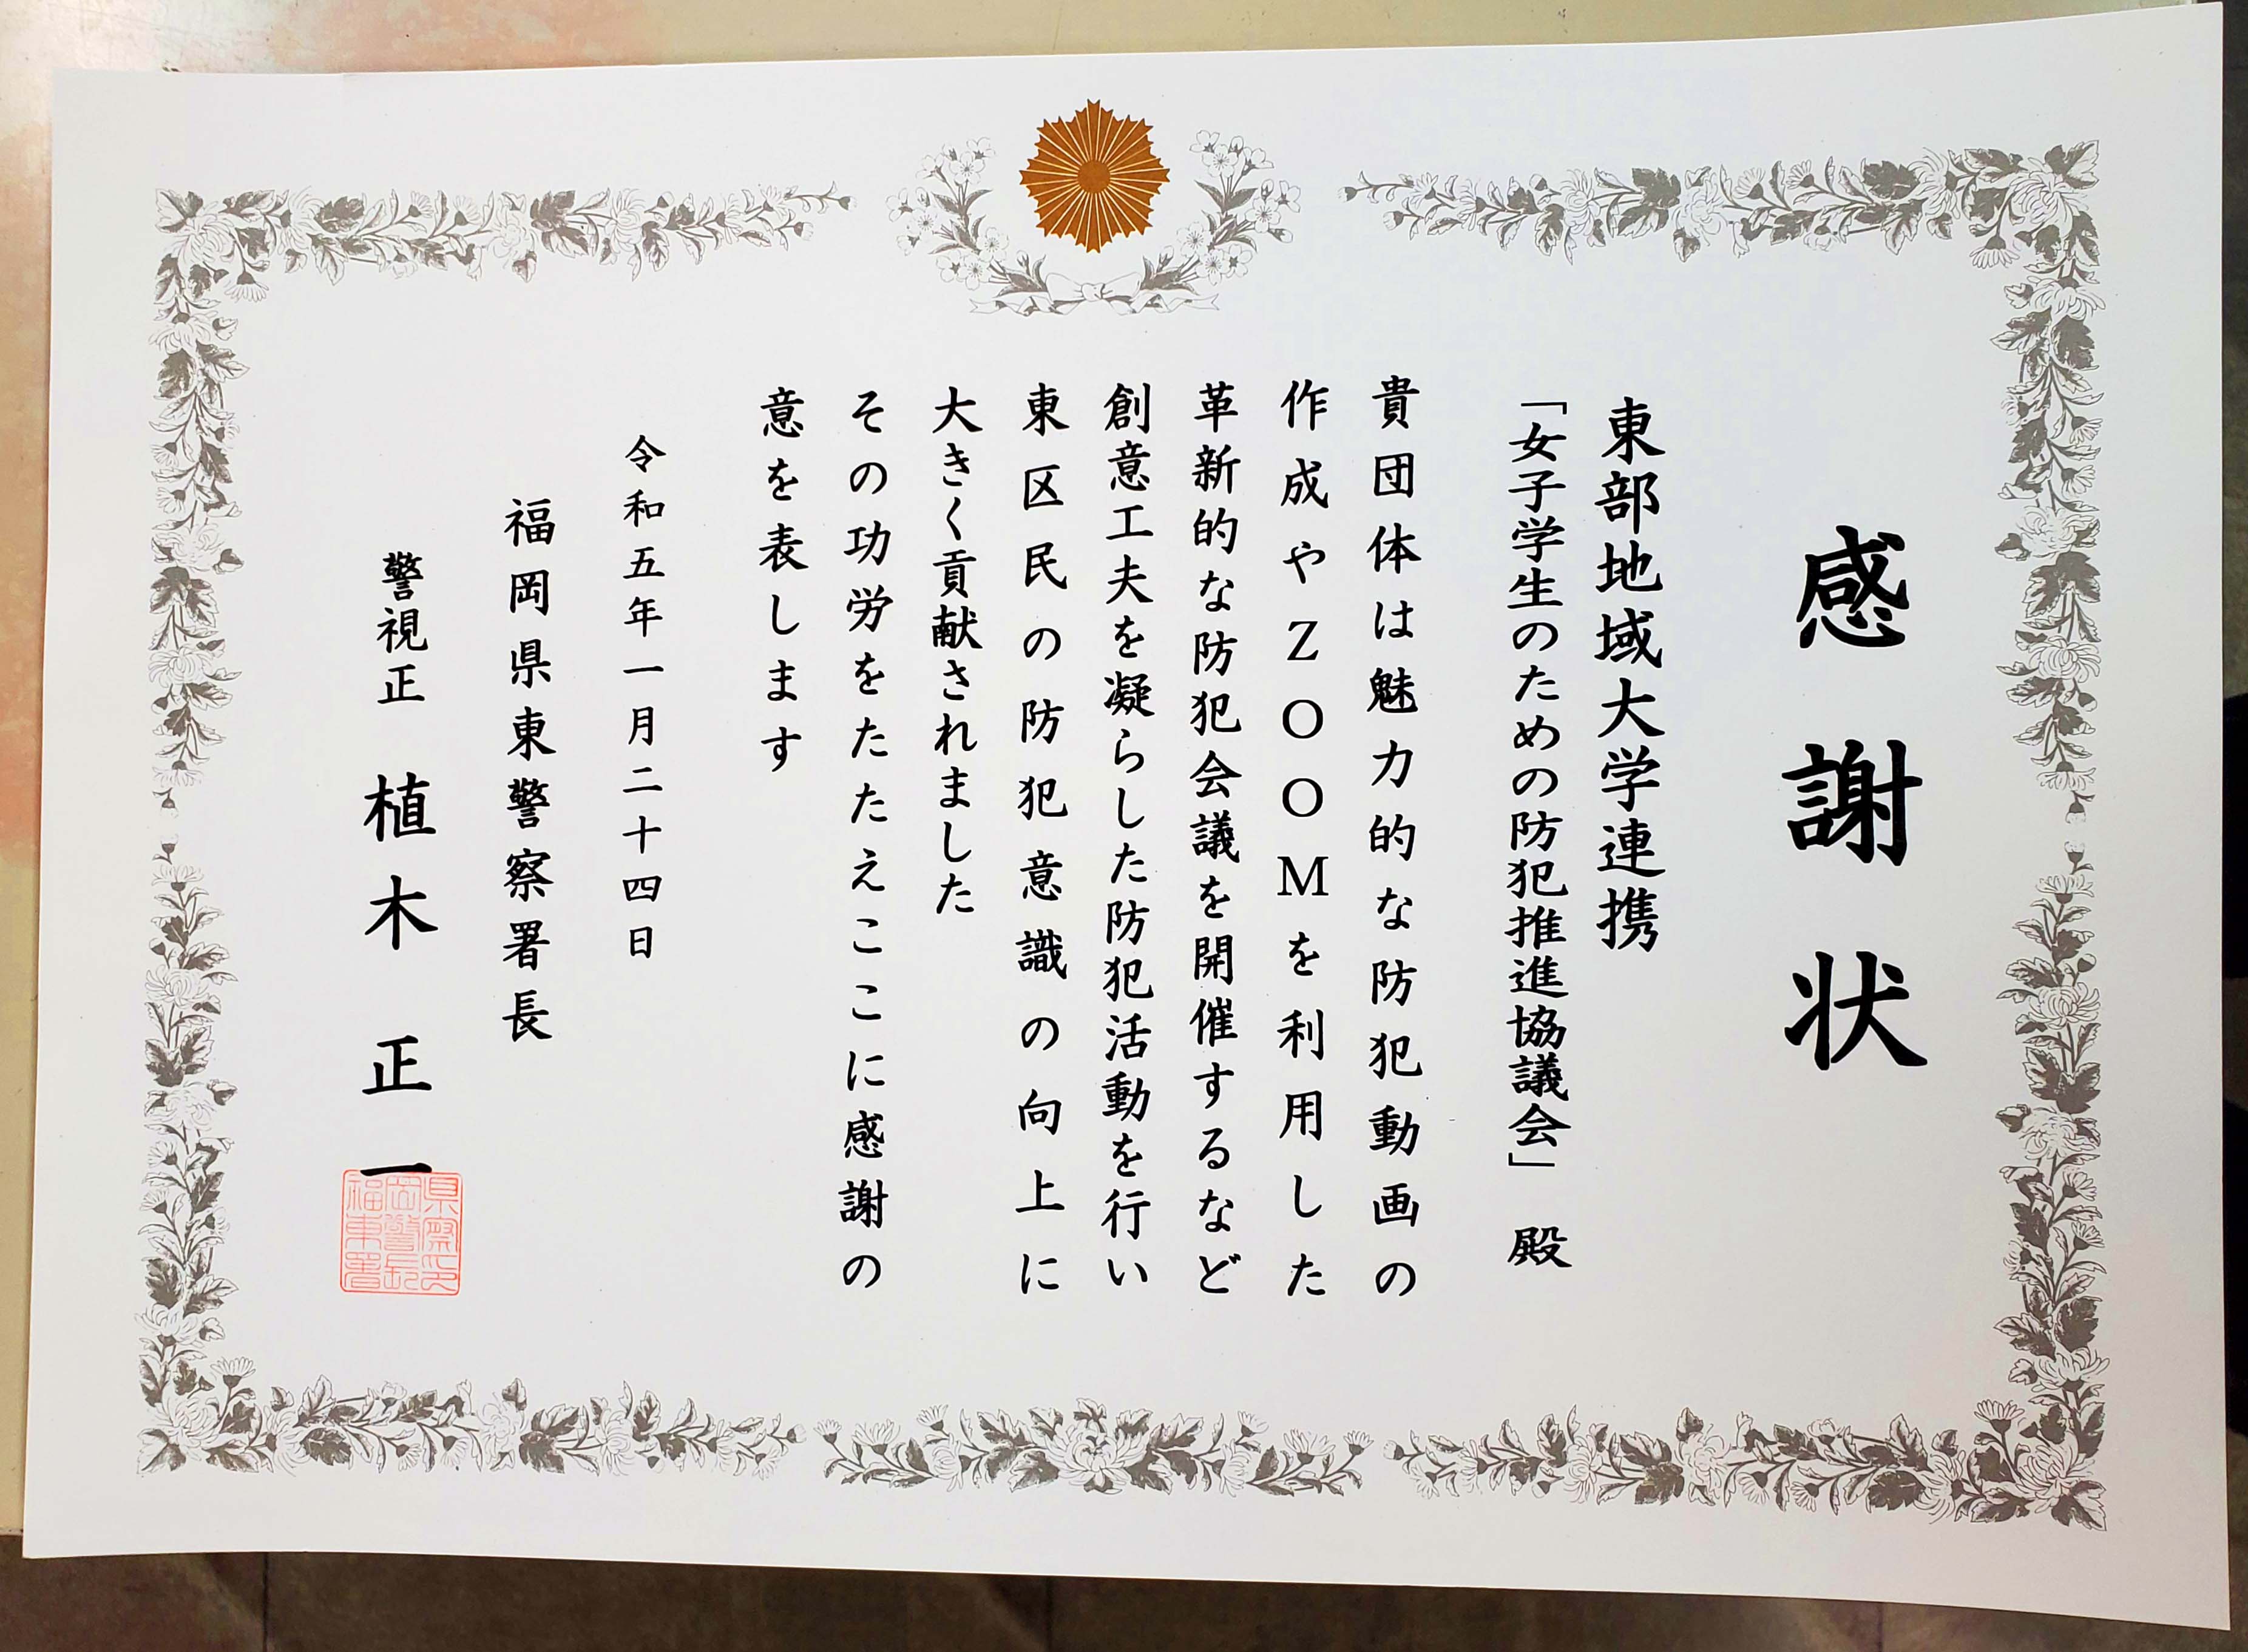 感謝状
東部地域大学連携
「女子学生のための防犯推進協議会」 殿
貴団体は魅力的な防犯動画の
作成やZOOMを利用した
革新的な防犯会議を開催するなど
創意工夫を凝らした防犯活動を行い
東区民の防犯意識の向上に
大きく貢献されました
その功労をたたえここに感謝の
意を表します
令和五年一月二十四日
福岡県東警察署長
警視正 植木正一
県察印
岡警長
福東署